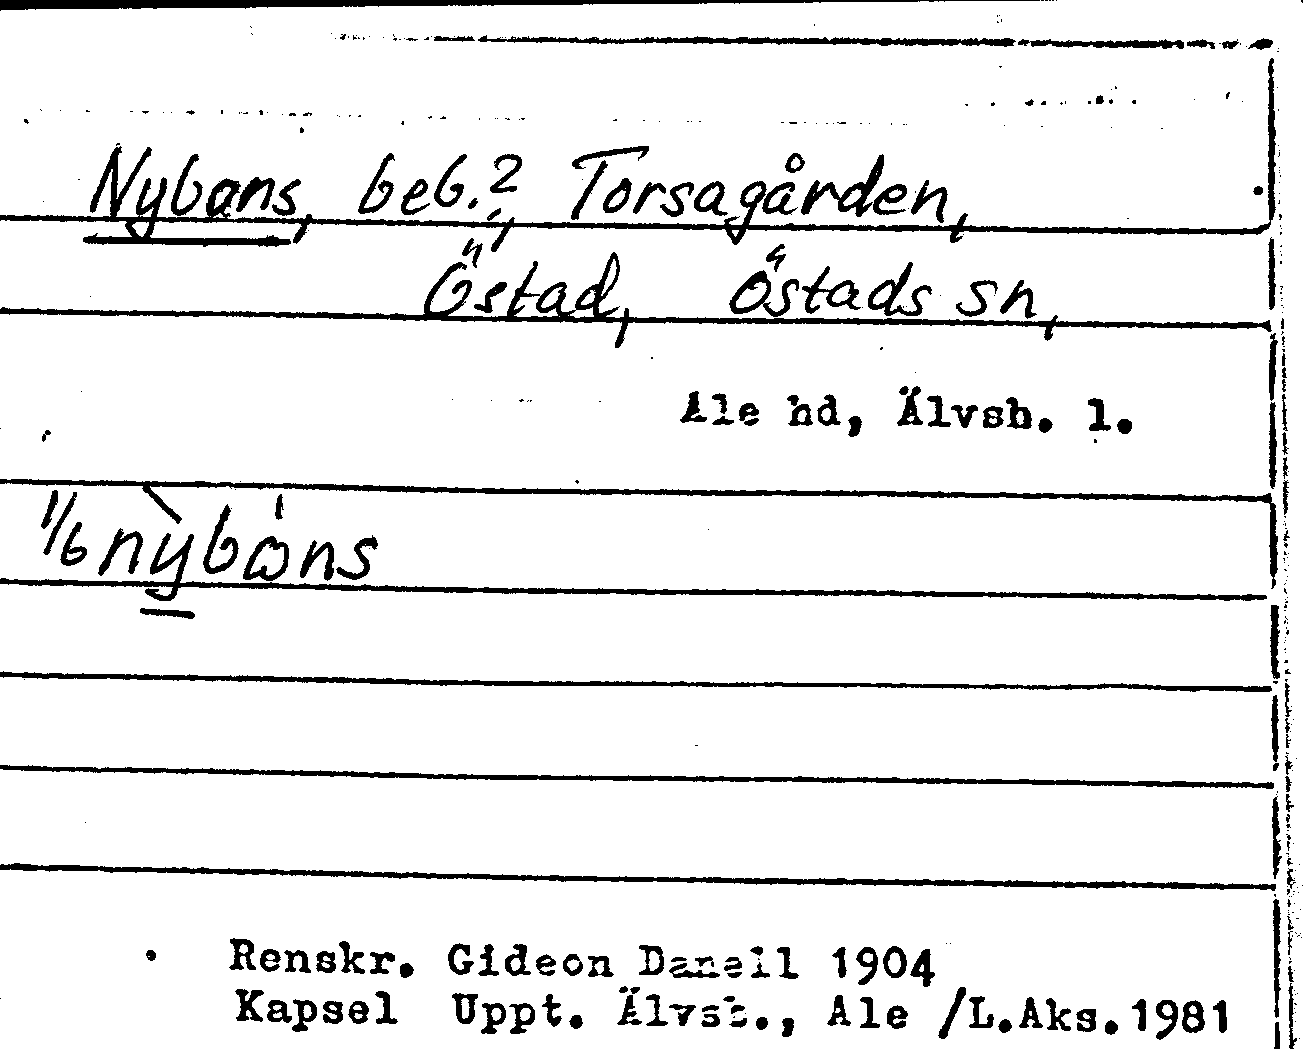 Nybans, beb.?, Torsagården,
Östad, Östads sn,
Ale hd, Älvsb. l.
1/6 nỳbɷ̍ns
Renskr. Gideon Danell 1904
Kapsel Uppt. Älvsb., Ale /L.Aks.1981